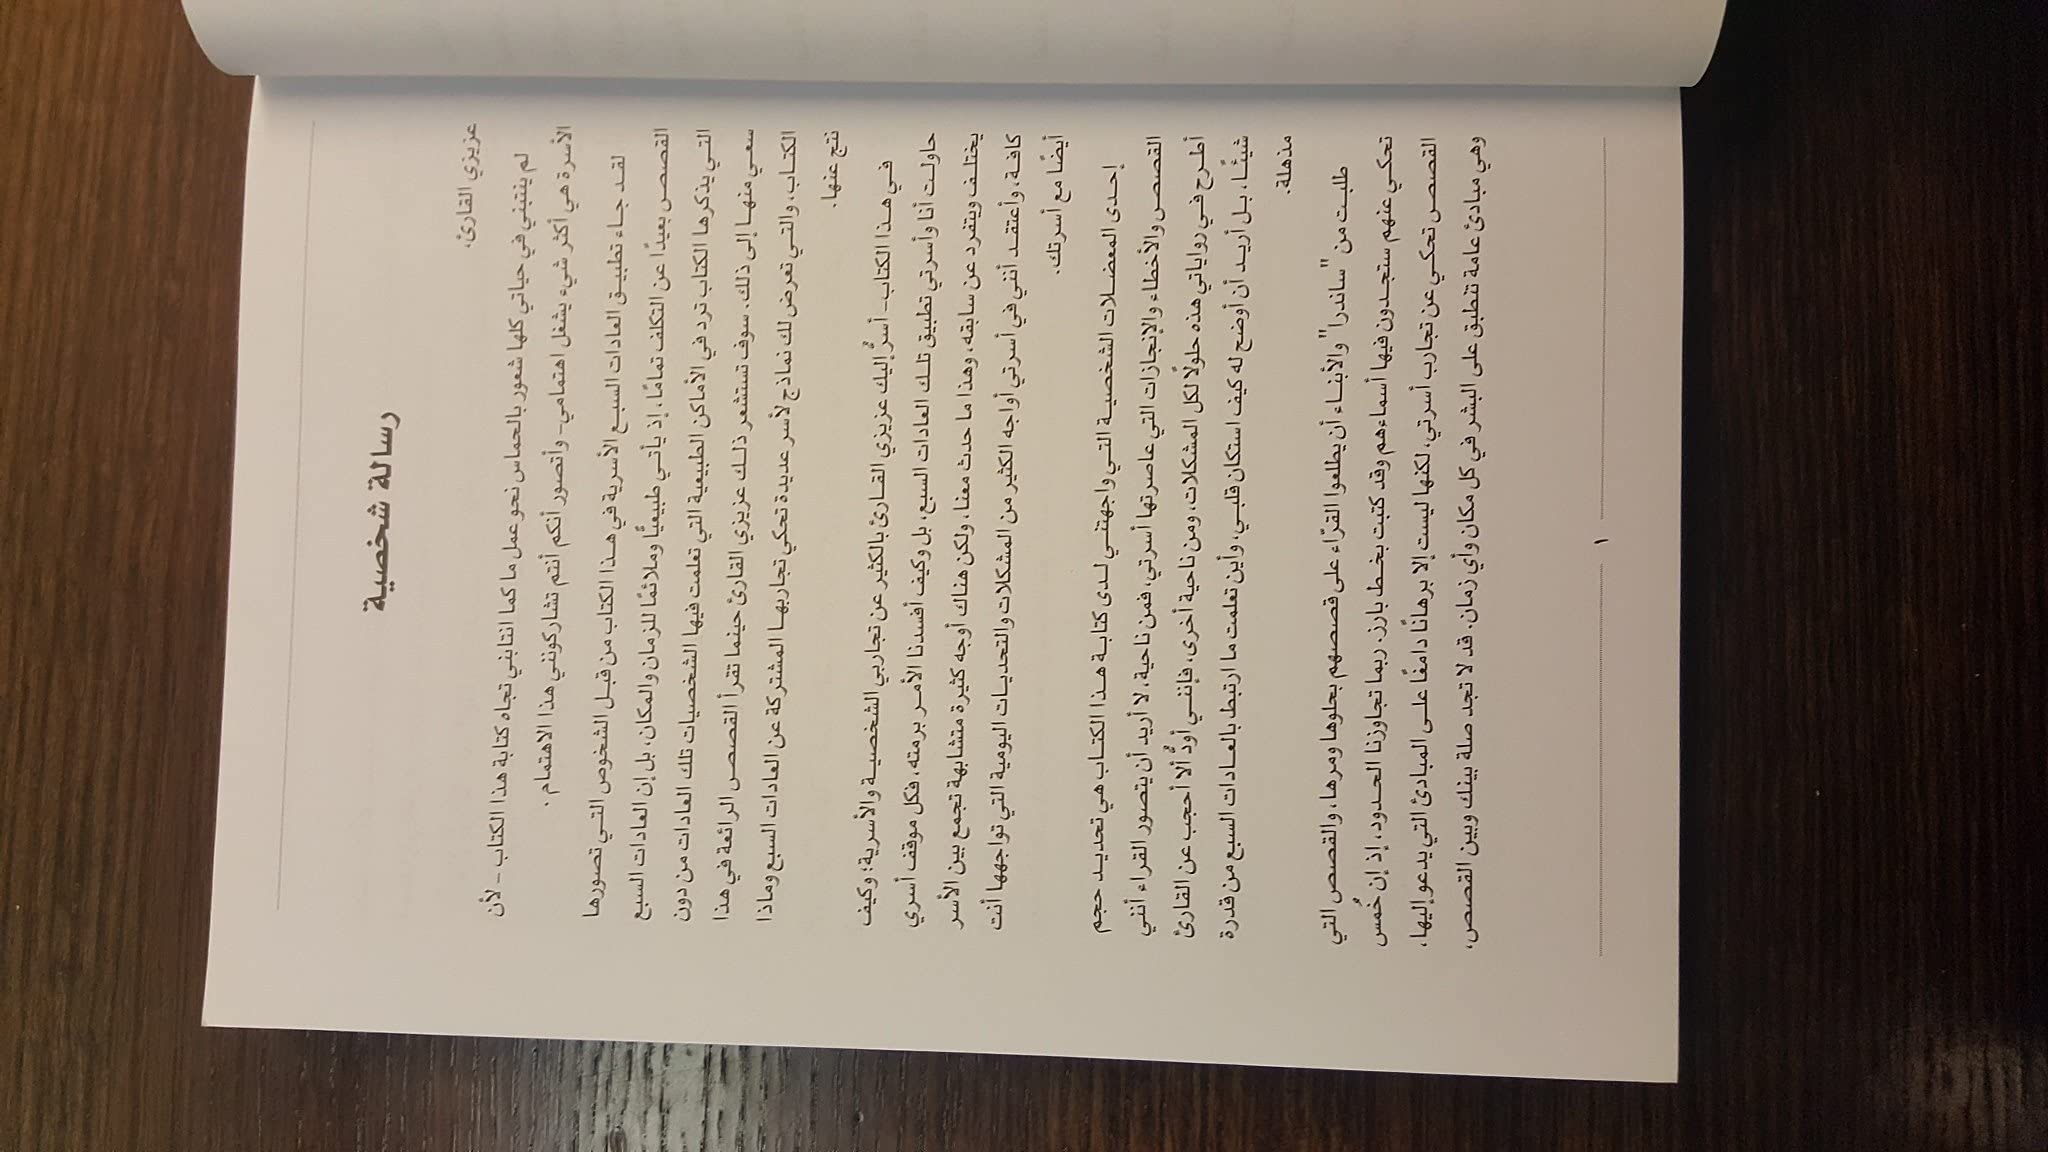 رسالة شخصية
عزيزي القارئ،
لم ينتبني في حياتي كلها شعور بالحماس نحو عمل ما كما انتابني تجاه كتابة هذا الكتاب - لأن
الأسرة هي أكثر شيء يشغل اهتمامي - وأتصور أنكم أنتم تشاركونني هذا الاهتمام .
لقد جاء تطبيق العادات السبع الأسرية في هذا الكتاب من قبل الشخوص التي تصورها
القصص بعيدًا عن التكلف تمامًا، إذ يأتي طبيعيًّا وملائمًا للزمان والمكان، بل إن العادات السبع
التي يذكرها الكتاب ترد في الأماكن الطبيعية التي تعلمت فيها الشخصيات تلك العادات من دون
سعي منها إلى ذلك. سوف تستشعر ذلك عزيزي القارئ حينما تقرأ القصص الرائعة في هذا
الكتاب، والتي تعرض لك نماذج لأسر عديدة تحكي تجاربها المشتركة عن العادات السبع وماذا
نتج عنها.
في هذا الكتاب- أسرُّ إليك عزيزي القارئ بالكثير عن تجاربي الشخصية والأسرية؛ وكيف
حاولت أنا وأسرتي تطبيق تلك العادات السبع، بل وكيف أفسدنا الأمر برمته، فكل موقف أسري
يختلف ويتفرد عن سابقه، وهذا ما حدث معنا، ولكن هناك أوجه كثيرة متشابهة تجمع بين الأسر
كافة، وأعتقد أنني في أسرتي أواجه الكثير من المشكلات والتحديات اليومية التي تواجهها أنت
أيضًا مع أسرتك.
إحدى المعضلات الشخصية التي واجهتني لدى كتابة هذا الكتاب هي تحديد حجم
القصص والأخطاء والإنجازات التي عاصرتها أسرتي، فمن ناحية، لا أريد أن يتصور القراء أنني
أطرح في رواياتي هذه حلولًا لكل المشكلات، ومن ناحية أخرى، فإنني أودُّ ألا أحجب عن القارئ
شيئًا، بل أريد أن أوضح له كيف استكان قلبي، وأين تعلمت ما ارتبط بالعادات السبع من قدرة
مذهلة.
طلبت من "ساندرا" والأبناء أن يطلعوا القرّاء على قصصهم بحلوها ومرها، والقصص التي
تحكي عنهم ستجدون فيها أسماءهم وقد كتبت بخط بارز. ربما تجاوزنا الحدود، إذ إن خُمس
القصص تحكي عن تجارب أسرتي، لكنها ليست إلا برهانًا دامغًا على المبادئ التي يدعو إليها،
وهي مبادئ عامة تنطبق على البشر في كل مكان وأي زمان. قد لا تجد صلة بينك وبين القصص،
١